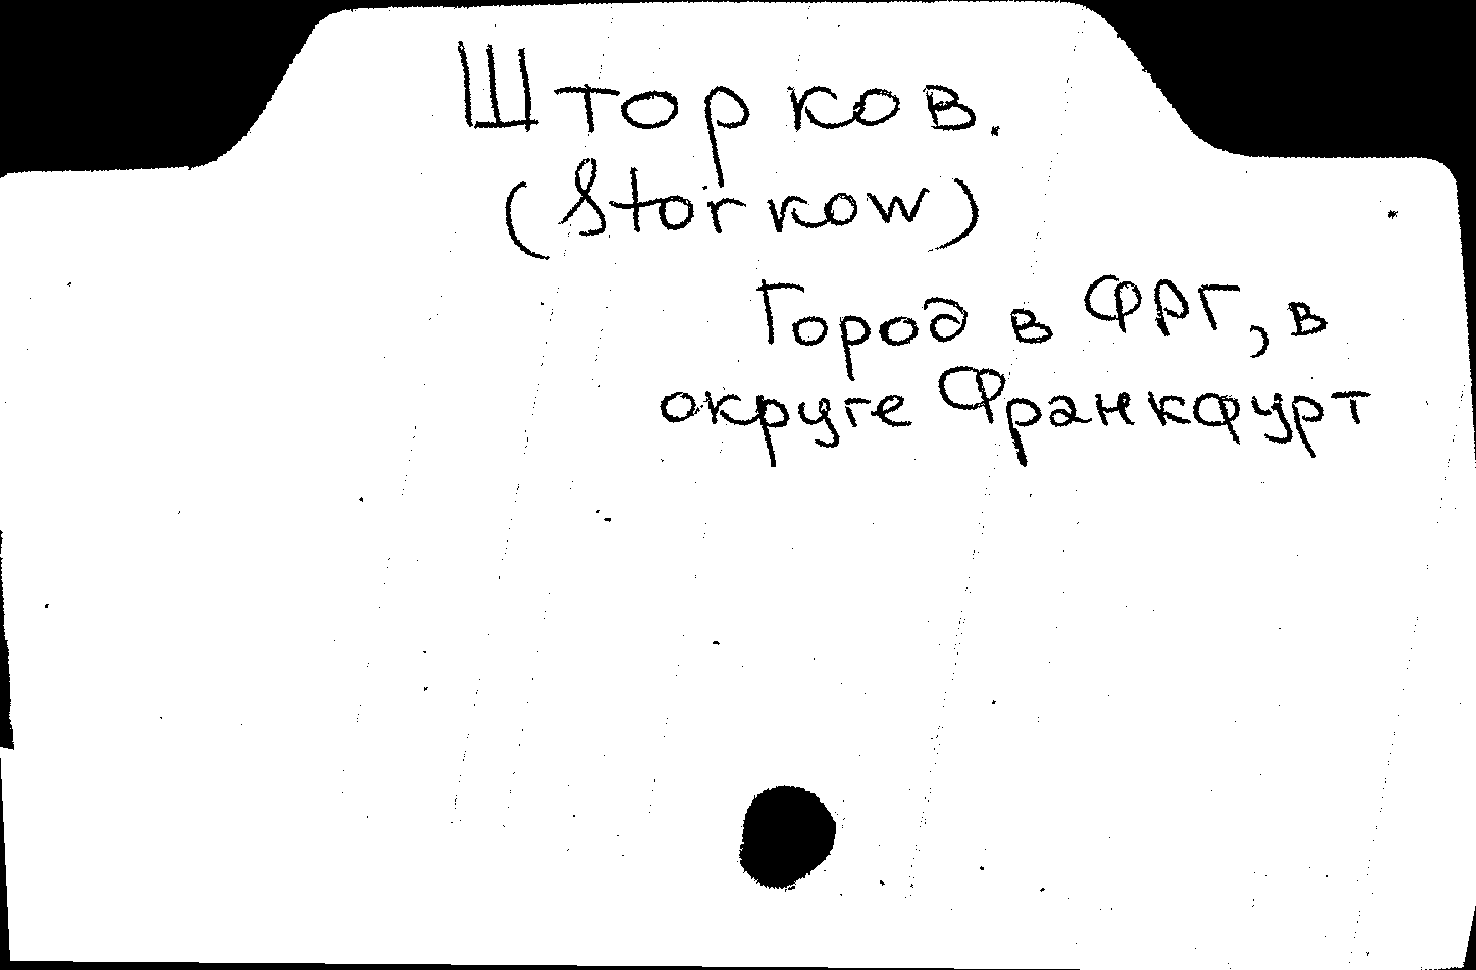 Шторков.
(Storkow)
Город в ФРГ, в
округе Франкфурт